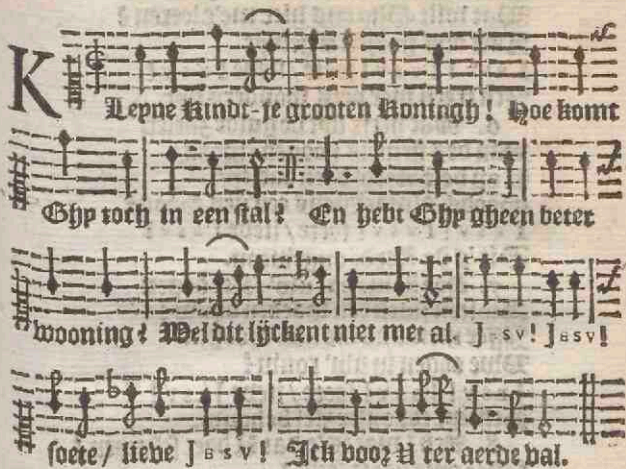 KLeyne Kindt-je grooten Koningh! Hoe komt
Ghy toch in een stal? En hebt Ghy gheen beter
wooning? Wel dit lijckent niet met al. J sv! JESV!
soete / lieve JESV! Ick voor U ter aerde val.